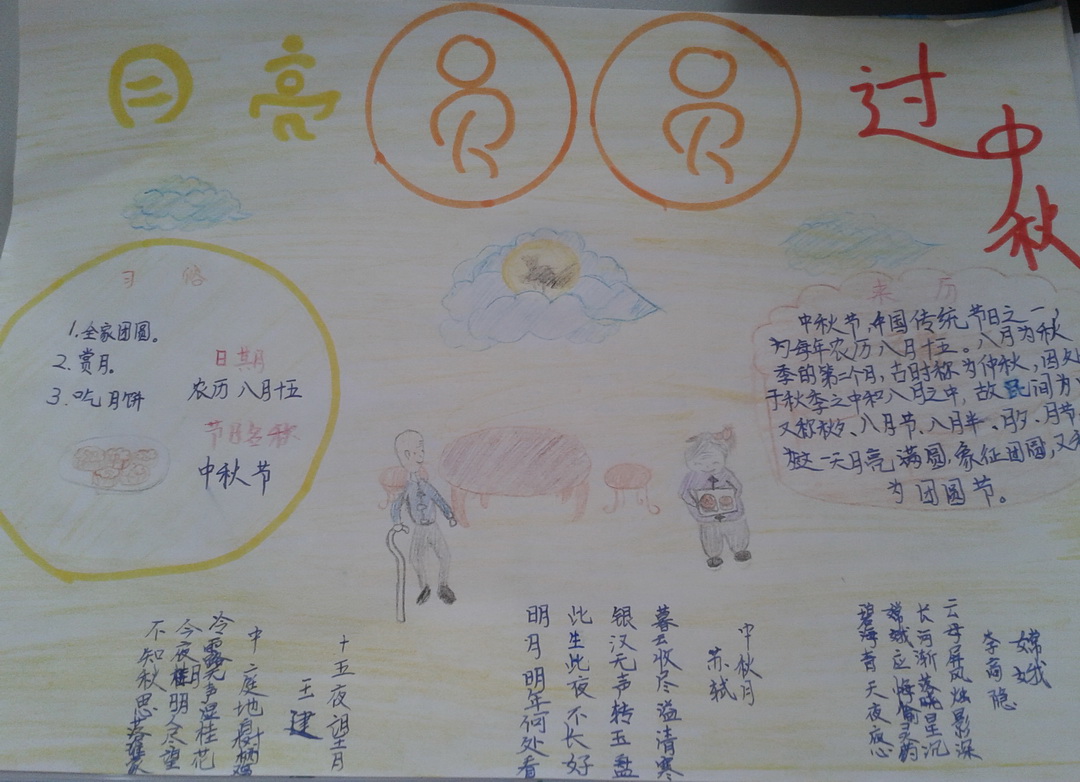 月亮圆圆过中秋
习俗
1.全家团圆。
2.赏月。
3.吃月饼
日期
农历八月十五
节日名称
中秋节
来历
中秋节,中国传统节日之一,
为每年农历八月十五。八月为秋
季的第二个月,古时称为仲秋,因处
于秋季之中和八月之中,故民间为
又称秋夕、八月节、八月半、月夕、月节
这一天月亮满圆,象征团圆,又
为团圆节。
十五夜望月
王建
中庭地白树栖鸦
冷露无声湿桂花
今夜月明人尽望
不知秋思落谁家
中秋月
苏轼
暮云收尽溢清寒
银汉无声转玉盘
此生此夜不长好
明月明年何处看
嫦娥
李商隐
云母屏风烛影深
长河渐落晓星沉
嫦娥应悔偷灵药
碧海青天夜夜心